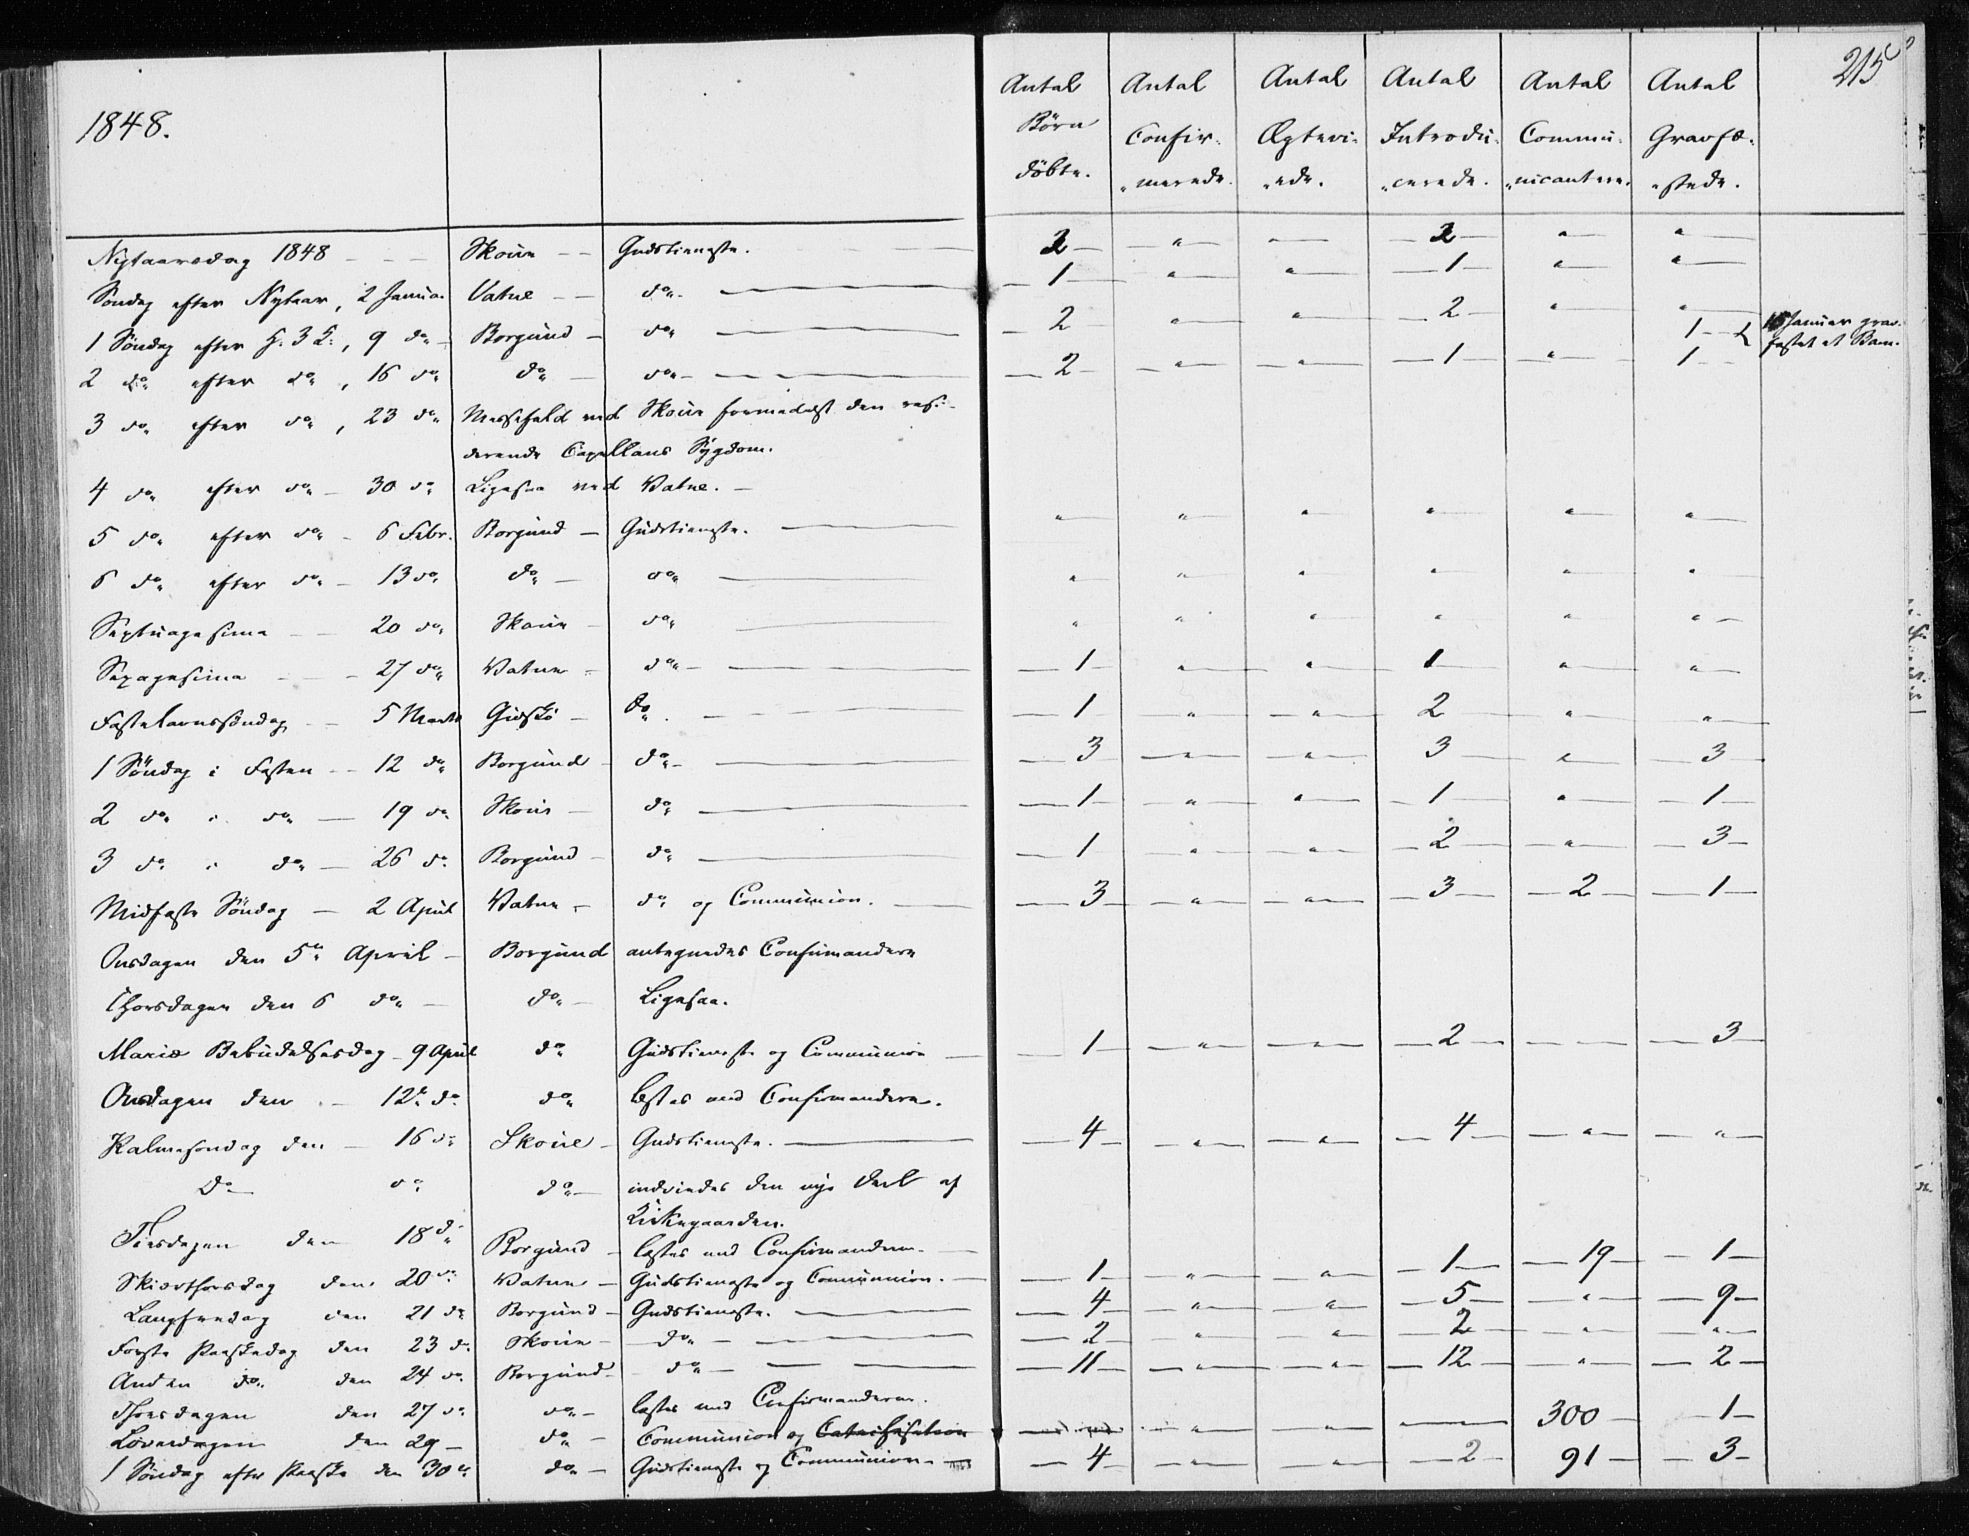 215
1848.
Antal Børn döbte. Antal Confir- „merede. Antal Ægtevi- „ede. Antal Introdu- „cerede. Antal Commu- „nicantere. Antal Gravfæ- „stede.
Nytaarsdag 1848 - - - Skoue - - Gudstieneste. 2 " 2 " "
Søndag efter Nytaar, 2 Januar Vatne - - do. 1 " " 1 " "
1 Søndag efter H. 3 K., 9 do - Borgund - do 2 " " 2 " "
1 15 Januar grav-
fæstet et Barn.
2 do efter do, 16 do do - do 2 " " 1 " 1
3 do efter do, 23 do Messefald ved Skoue formedelst den resi-
derende Capellans Sygdom.
4 do efter do - 30 do Ligesaa ved Vatne. -
5 do efter do - 6 Febr. Borgund - Gudstieneste. " " " " " "
6 do efter do - 13 do do - do " " " " " "
Septuagesima - - 20 do Skoue - do " " " " " "
Sexagesima - - 27 do Vatne - do 1 " " 1 " "
Fastelavnssöndag - - 5 Marts Giskø - do. 1 " " 2 " "
1 Søndag i Fasten - - 12 do Borgund - do 3 " " 3 " 3
2 do i do - 19 do Skoue - do 1 " " 1 " 1
3 do i do - 26 do Borgund - do 1 " " 2 " 3
Midfaste Søndag - 2 April Vatne - do og Communion. 3 " " 3 2 1
Onsdagen den 5te April - Borgund antegnedes Confirmandere
Thorsdagen den 6 do - do - Ligesaa.
Mariæ Bebudelsesdag - 9 April do Gudstieneste og Communion 1 " " 2 - 3
Onsdagen den - 12te do do læstes med Confirmandere.
Palmesondag den - 16 do Skoue - Gudstieneste. 4 " " 4 " "
Do do do - indviedes den nye Deel af
Kirkegaarden.
Tiisdagen den 18 do Borgund - læstes med Confirmandere.
Skiærthorsdag den 20 do Vatne - Gudstieneste og Communion. 1 " " 1 19 1
Langfredag den 21 do Borgund - Gudstieneste. 4 " " 5 " 9
Første Paaskedag den 23 do Skoue - do - 2 " " 2 " "
Anden do. den 24 do Borgund - do - 11 " " 12 " 2
Thorsdagen den 27 do do - læstes med Confirmanderne.
Løverdagen den 29 - do - Communion og Catechisation " " 300 1
1 Søndag efter Paaske den 30te do - Gudstieneste og Communion - 4 " " 2 91 3